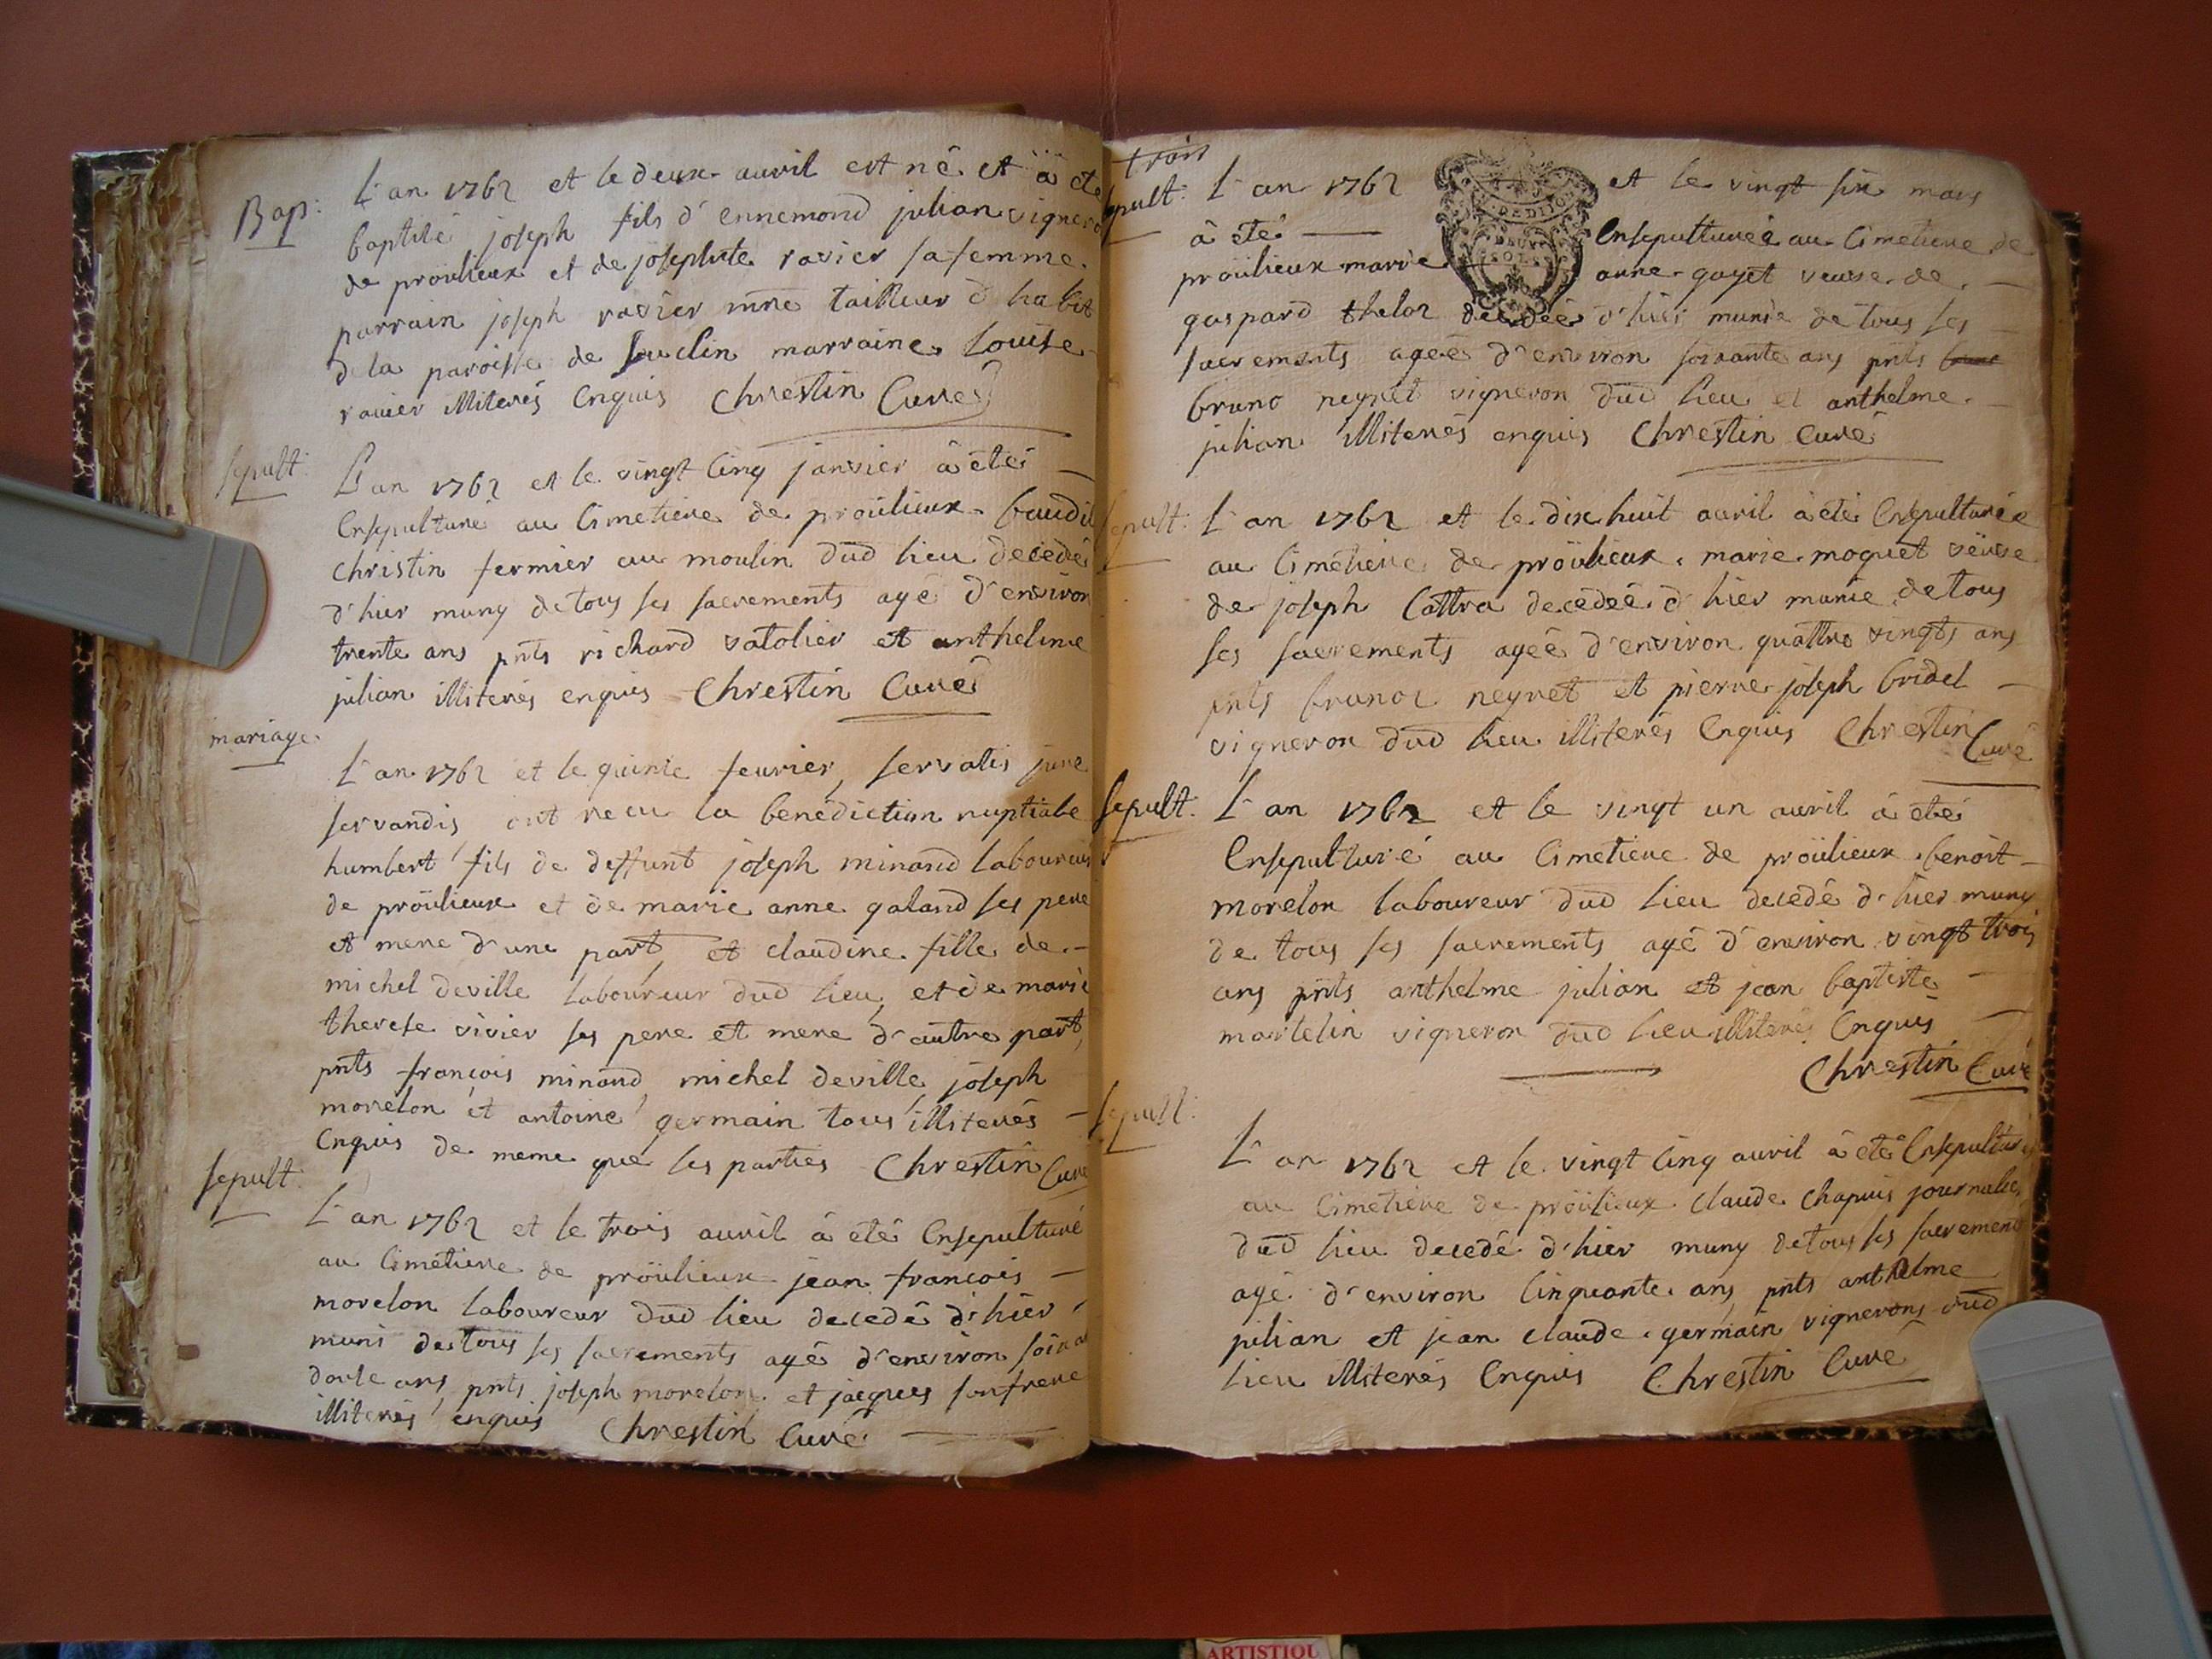 Bap:
L'an 1762 et le deux auvril est né et à eté
baptisé joseph fils d'ennemond julian vigneron
de proülieux et de josephte ravier sa femme
parrain joseph ravier mre tailleur d'habit
d la paroisse de marraine Louise
ravier illiterés enquis Chrestin Curé
sepult:
L'an 1762 et le vingt cinq janvier à eté
Ensepulturé au Cimetiere de proülieux baudil
christin fermier au moulin dud lieu decedé
d'hier muny de tous ses sacrements agé d'environ
trente ans pnts richard vatolier et anthelme
julian illiterés enquis Chrestin Curé
mariage.
L'an 1762 et le quinze feuvrier, servatis jure
servandis, ont recu la benédiction nuptiale
humbert fils de deffunt joseph minand laboureur
de proülieux et de marie anne galand ses pere
et mere d'une part, et claudine fille de
michel deville laboureur dud lieu, et de marie
therese vivier ses pere et mere d'autre part,
pnts francois minand, michel deville, joseph
morelon et antoine germain tous illiterés
Enquis de meme que les parties Chrestin Curé
sepult:
L'an 1762 et le trois auvril à eté Ensepulturé
au Cimetiere de proülieux jean francois
morelon laboureur dud lieu decedé d'hier
muni de tous ses sacrements agé d'environ
douze ans, pnts joseph morelon et jacques son frere
illiterés enquis Chrestin Curé
trois
sepult:
L'an 1762 et le vingt six mars
à eté Ensepulturée au Cimetiere de
proülieux marie anne gayet veuve de
DEUX SOLS
gaspard theloz decedée d'hier munie de tous ses
sacrements agée d'environ soixante ans pnts
bruno neyret vigneron dud lieu et anthelme
julian illiterés enquis Chrestin Curé
sepult:
L'an 1762 et le dix huit auvril à eté Ensepulturée
au Cimetiere de proülieux marie moquet veuve
de joseph Cottra decedée d'hier munie de tous
ses sacrements agée d'environ quattre vingts ans
pnts brunoz neyret et pierre joseph bridel
vigneron dud lieu illiterés Enquis Chrestin Curé
sepult:
L'an 1762 et le vingt un auvril à eté
Ensepulturé au Cimetiere de proülieux benoit
morelon laboureur dud lieu decedé d'hier muny
de tous ses sacrements agé d'environ vingt trois
ans pnts anthelme julian et jean baptiste
martelin vigneron dud lieu illiterés Enquis
Chrestin Curé
sepult:
L'an 1762 et le vingt cinq auvril à eté Ensepulturé
au Cimetiere de proülieux claude chapuis journalier
dud lieu decedé d'hier muny de tous ses sacrements
agé d'environ cinquante ans, pnts anthelme
julian et jean claude germain vignerons dud
lieu illiterés Enquis Chrestin Curé
ARTISTIQU